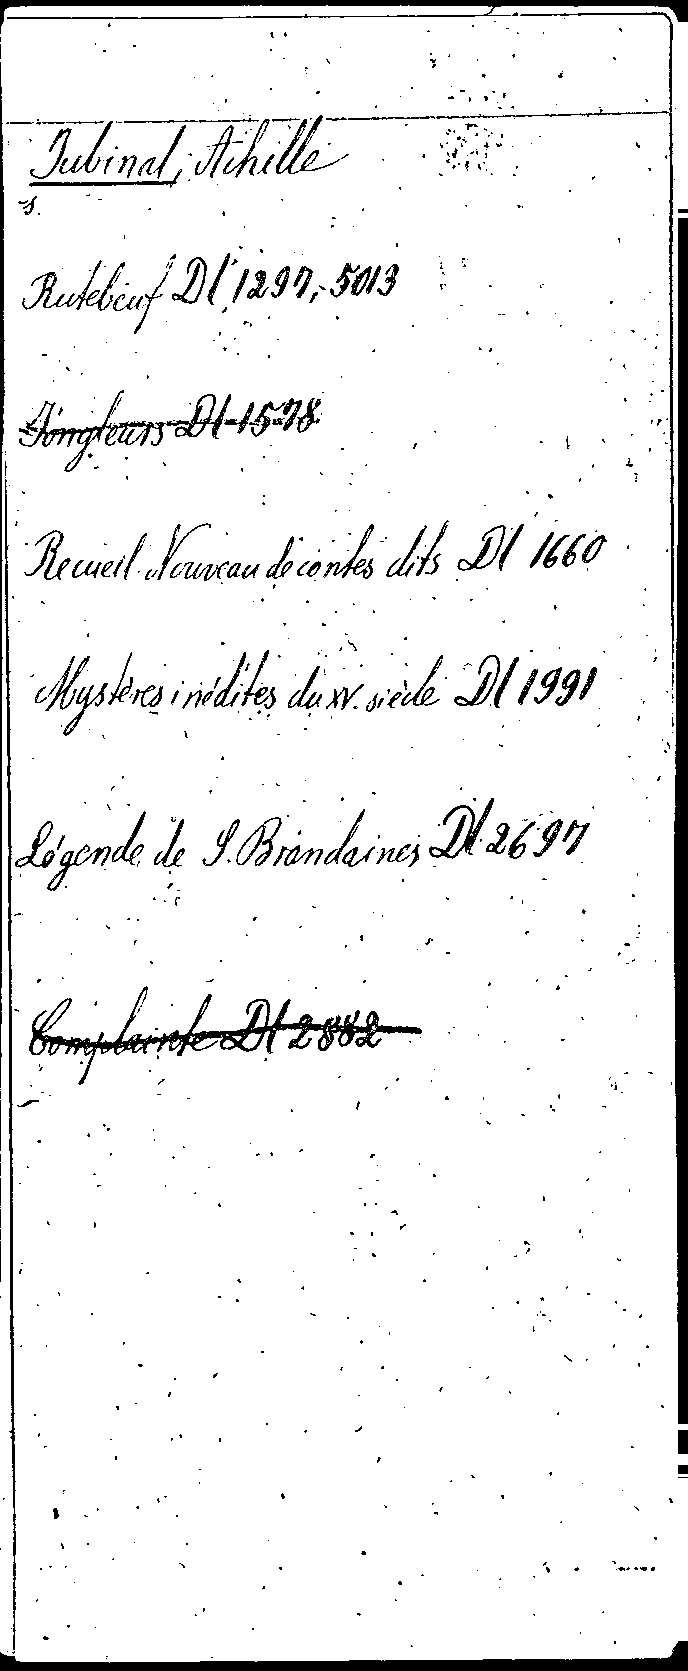 Jubinal, Achille
s.
Rutebeuf Dl 1297, 5013
Jongleurs Dl 1578
Recueil Nouveau de contes dits Dl 1660
Mystères inédites du XV. siècle Dl 1991
Légende de S. Brandaines Dl 2697
Complainte Dl 2882